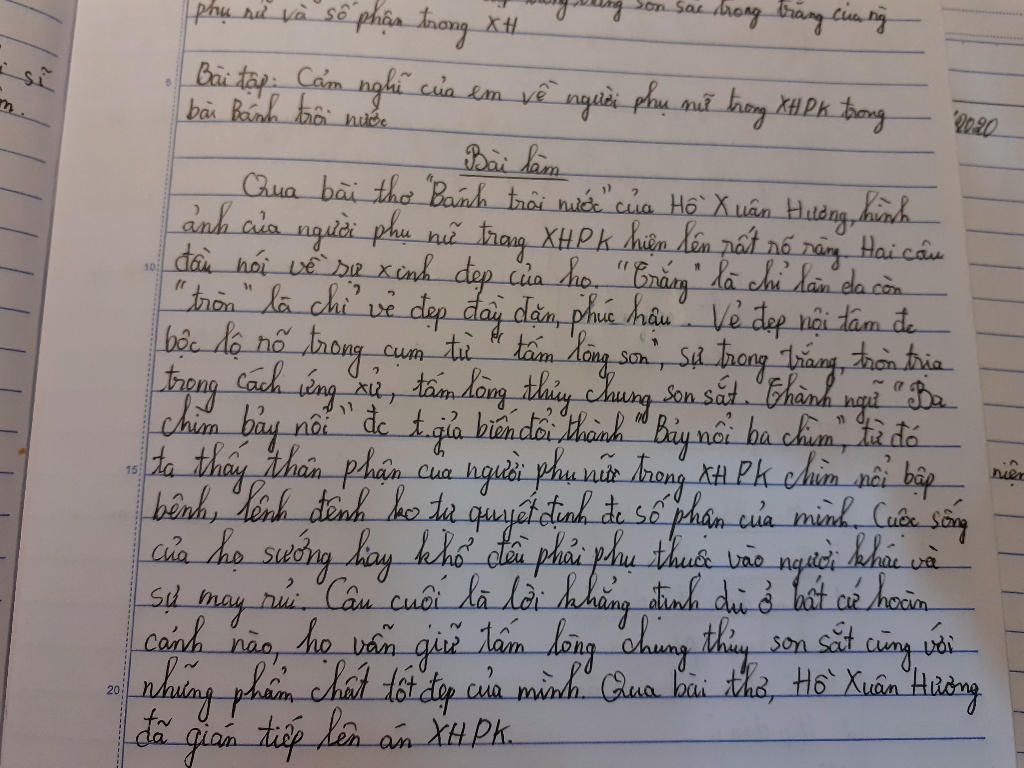 son sắc trong trắng của ng
phụ nữ và số phận trong XH
Bài tập: Cảm nghĩ của em về người phụ nữ trong XHPK trong
bài Bánh trôi nước
Bài làm
Qua bài thơ "Bánh trôi nước" của Hồ Xuân Hương, hình
ảnh của người phụ nữ trong XHPK hiện lên rất rõ ràng. Hai câu
đầu nói về sự xinh đẹp của họ. "Trắng" là chỉ làn da còn
"tròn" là chỉ vẻ đẹp đầy đặn, phúc hậu. Vẻ đẹp nội tâm đc
bộc lộ rõ trong cụm từ "tấm lòng son", sự trong trắng, tròn trịa
trong cách ứng xử, tấm lòng thủy chung son sắt. Thành ngữ "Ba
chìm bảy nổi" đc t.giả biến đổi, thành "Bảy nổi ba chìm", từ đó
ta thấy thân phận của người phụ nữ trong XHPK chìm nổi bập
bênh, lênh đênh ko tự quyết định đc số phận của mình. Cuộc sống
của họ sướng hay khổ đều phải phụ thuộc vào người khác và
sự may rủi. Câu cuối là lời khẳng định dù ở bất cứ hoàn
cảnh nào, họ vẫn giữ tấm lòng chung thủy son sắt cùng với
những phẩm chất tốt đẹp của mình. Qua bài thơ, Hồ Xuân Hương
đã gián tiếp lên án XHPK.
5
10
15
20
2020